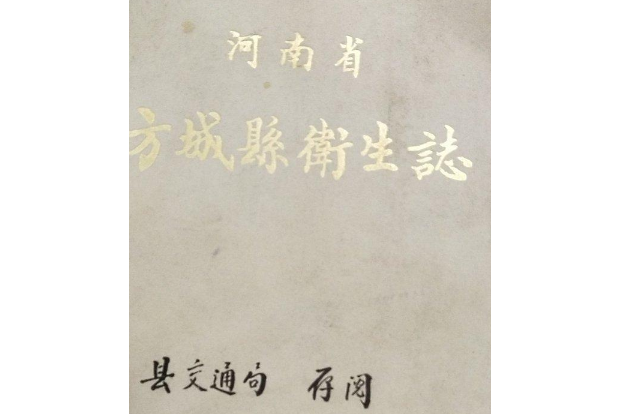 河南省
方城縣衛生誌
县交通局 存阅